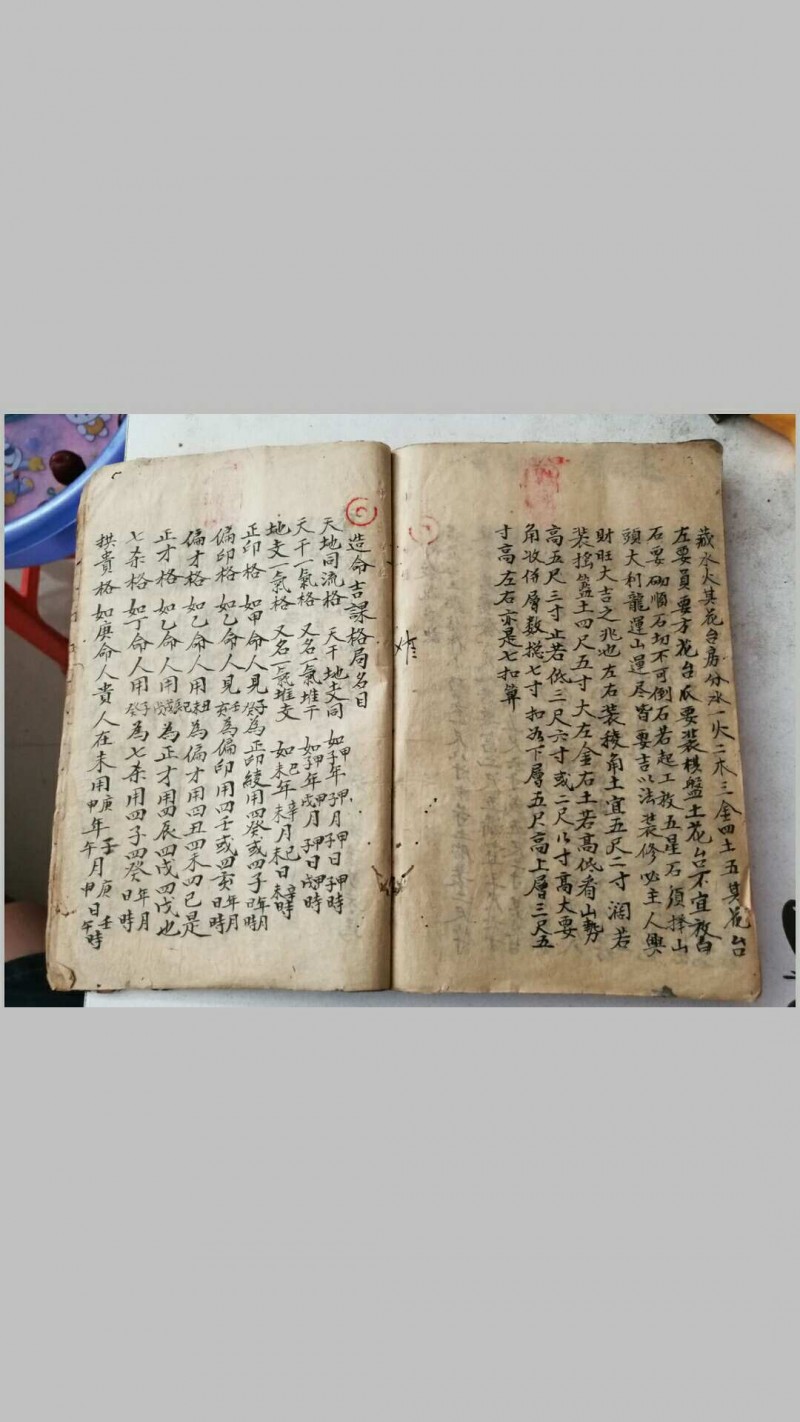 藏水火其花台房分水一火二木三金四土五其花台
左要員要方花台底要裝棋盤土花台不宜放白
石要砌順石切不可倒石若起工放五星石須擇山
頭大利龍運山運尽皆要吉以法裝修必主人興
財旺大吉之兆也左右裝稜角土宜五尺二寸濶若
裝搖籃土四尺五寸大左金右土若高低看山勢
高五尺三寸止若低三尺六寸或二尺八寸高大要
角收併層数搃七寸扣為下層五尺高上層三尺五
寸高左右亦是七扣算
造命吉課格局名目
天地同流格 天干地支同 如甲子年甲子月甲子日甲子時
天干一氣格 又名一氣堆干 如甲子年甲戌月甲子日甲戌時
地支一氣格 又名一氣堆支 如己未年辛未月己未日辛未時
正印格 如甲命人見癸子為正印綬用四癸或四子年月日時
偏印格 如乙命人見壬亥為偏印用四壬或四亥年月日時
偏才格 如乙命人用丑未己為偏才用四丑四未四己是
正才格 如乙命人用辰戌戊為正才用四辰四戌四戊也
七杀格 如丁命人用子癸為七杀用四子四癸年月日時
拱貴格 如庚命人貴人在未用庚甲年壬午月庚甲日壬午時